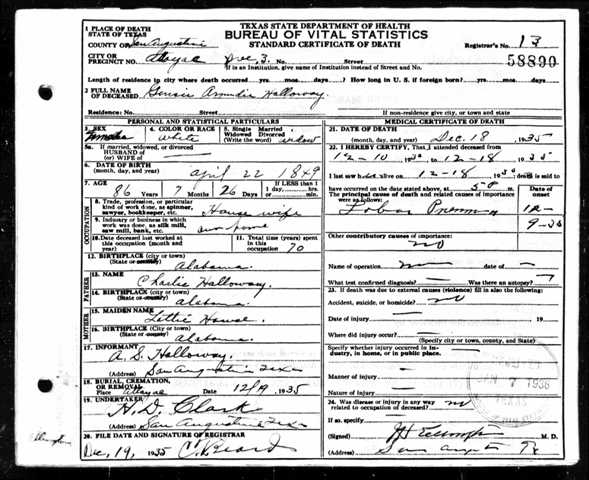 TEXAS STATE DEPARTMENT OF HEALTH
BUREAU OF VITAL STATISTICS
STANDARD CERTIFICATE OF DEATH
1 PLACE OF DEATH
STATE OF TEXAS
COUNTY OF San Augustine
CITY OR
PRECINCT NO. Attoyac Prec. 3. Street
Registrar's No. 13
58890
If in an Institution, give name of institution instead of Street and No.
Length of residence to city where death occurred yrs. mos. days. ? How long in U. S. if foreign born? yrs. mos. days.
2 FULL NAME
OF DECEASED Holloway.
Residence: No. Street If non-residence give city, or town and state
PERSONAL AND STATISTICAL PARTICULARS
3. SEX
4. COLOR OR RACE
white
5. Single Married
Widowed Divorced
(Write the word) widow
5a. If married, widowed, or divorced
HUSBAND OF
(or) WIFE OF
6. DATE OF BIRTH
(month, day, and year) April 22 1849
7. AGE
86 Years 7 Months 26 Days
If LESS than
1 day, hrs.
or min.
OCCUPATION
8. Trade, profession, or particular
kind of work done, as spinner,
sawyer, bookkeeper, etc. House wife
9. Industry or business in which
work was done, as silk mill,
saw mill, bank, etc. own home
10. Date deceased last worked at
this occupation (month and
year)
11. Total time (years) spent
in this
occupation 70
12. BIRTHPLACE (city or town)
(State or country) Alabama
FATHER
13. NAME
Charlie Holloway.
14. BIRTHPLACE (city or town)
(State or country) Alabama
MOTHER
15. MAIDEN NAME
Lettie
16. BIRTHPLACE (city or town)
(State or country) Alabama
17. INFORMANT
A. S. Holloway.
(Address) San Augustine Texas
18. BURIAL, CREMATION,
OR REMOVAL
Place Attoyac Date 12/19 1935
19. UNDERTAKER
H. D. Clark
(Address) San Augustine Texas
20. FILE DATE AND SIGNATURE OF REGISTRAR
Dec, 19, 1935 C. Beard
MEDICAL CERTIFICATE OF DEATH
21. DATE OF DEATH
(month, day, and year) Dec. 18 1935
22. I HEREBY CERTIFY, That I attended deceased from
12-10 1935 to 12-18 1935
I last saw h alive on 12-18 1935 death is said to
have occurred on the date stated above, at 5 m.
The principal cause of death and related causes of importance
were as follows:
Date of
onset
Lobar
12-
9-35
Other contributory causes of importance:
no
Name of operation Date of
What test confirmed diagnosis? Was there an autopsy?
23. If death was due to external causes (violence) fill in also the following:
Accident, suicide, or homicide? no
Date of injury 19
Where did injury occur?
(Specify city or town, county, and State)
Specify whether injury occurred in In-
dustry, in home, or in public place.
Manner of injury
Nature of injury
7 1936
TEXAS
24. Was disease or injury in any way
related to occupation of deceased? no
If so, specify
(Signed) M. D.
(Address) San